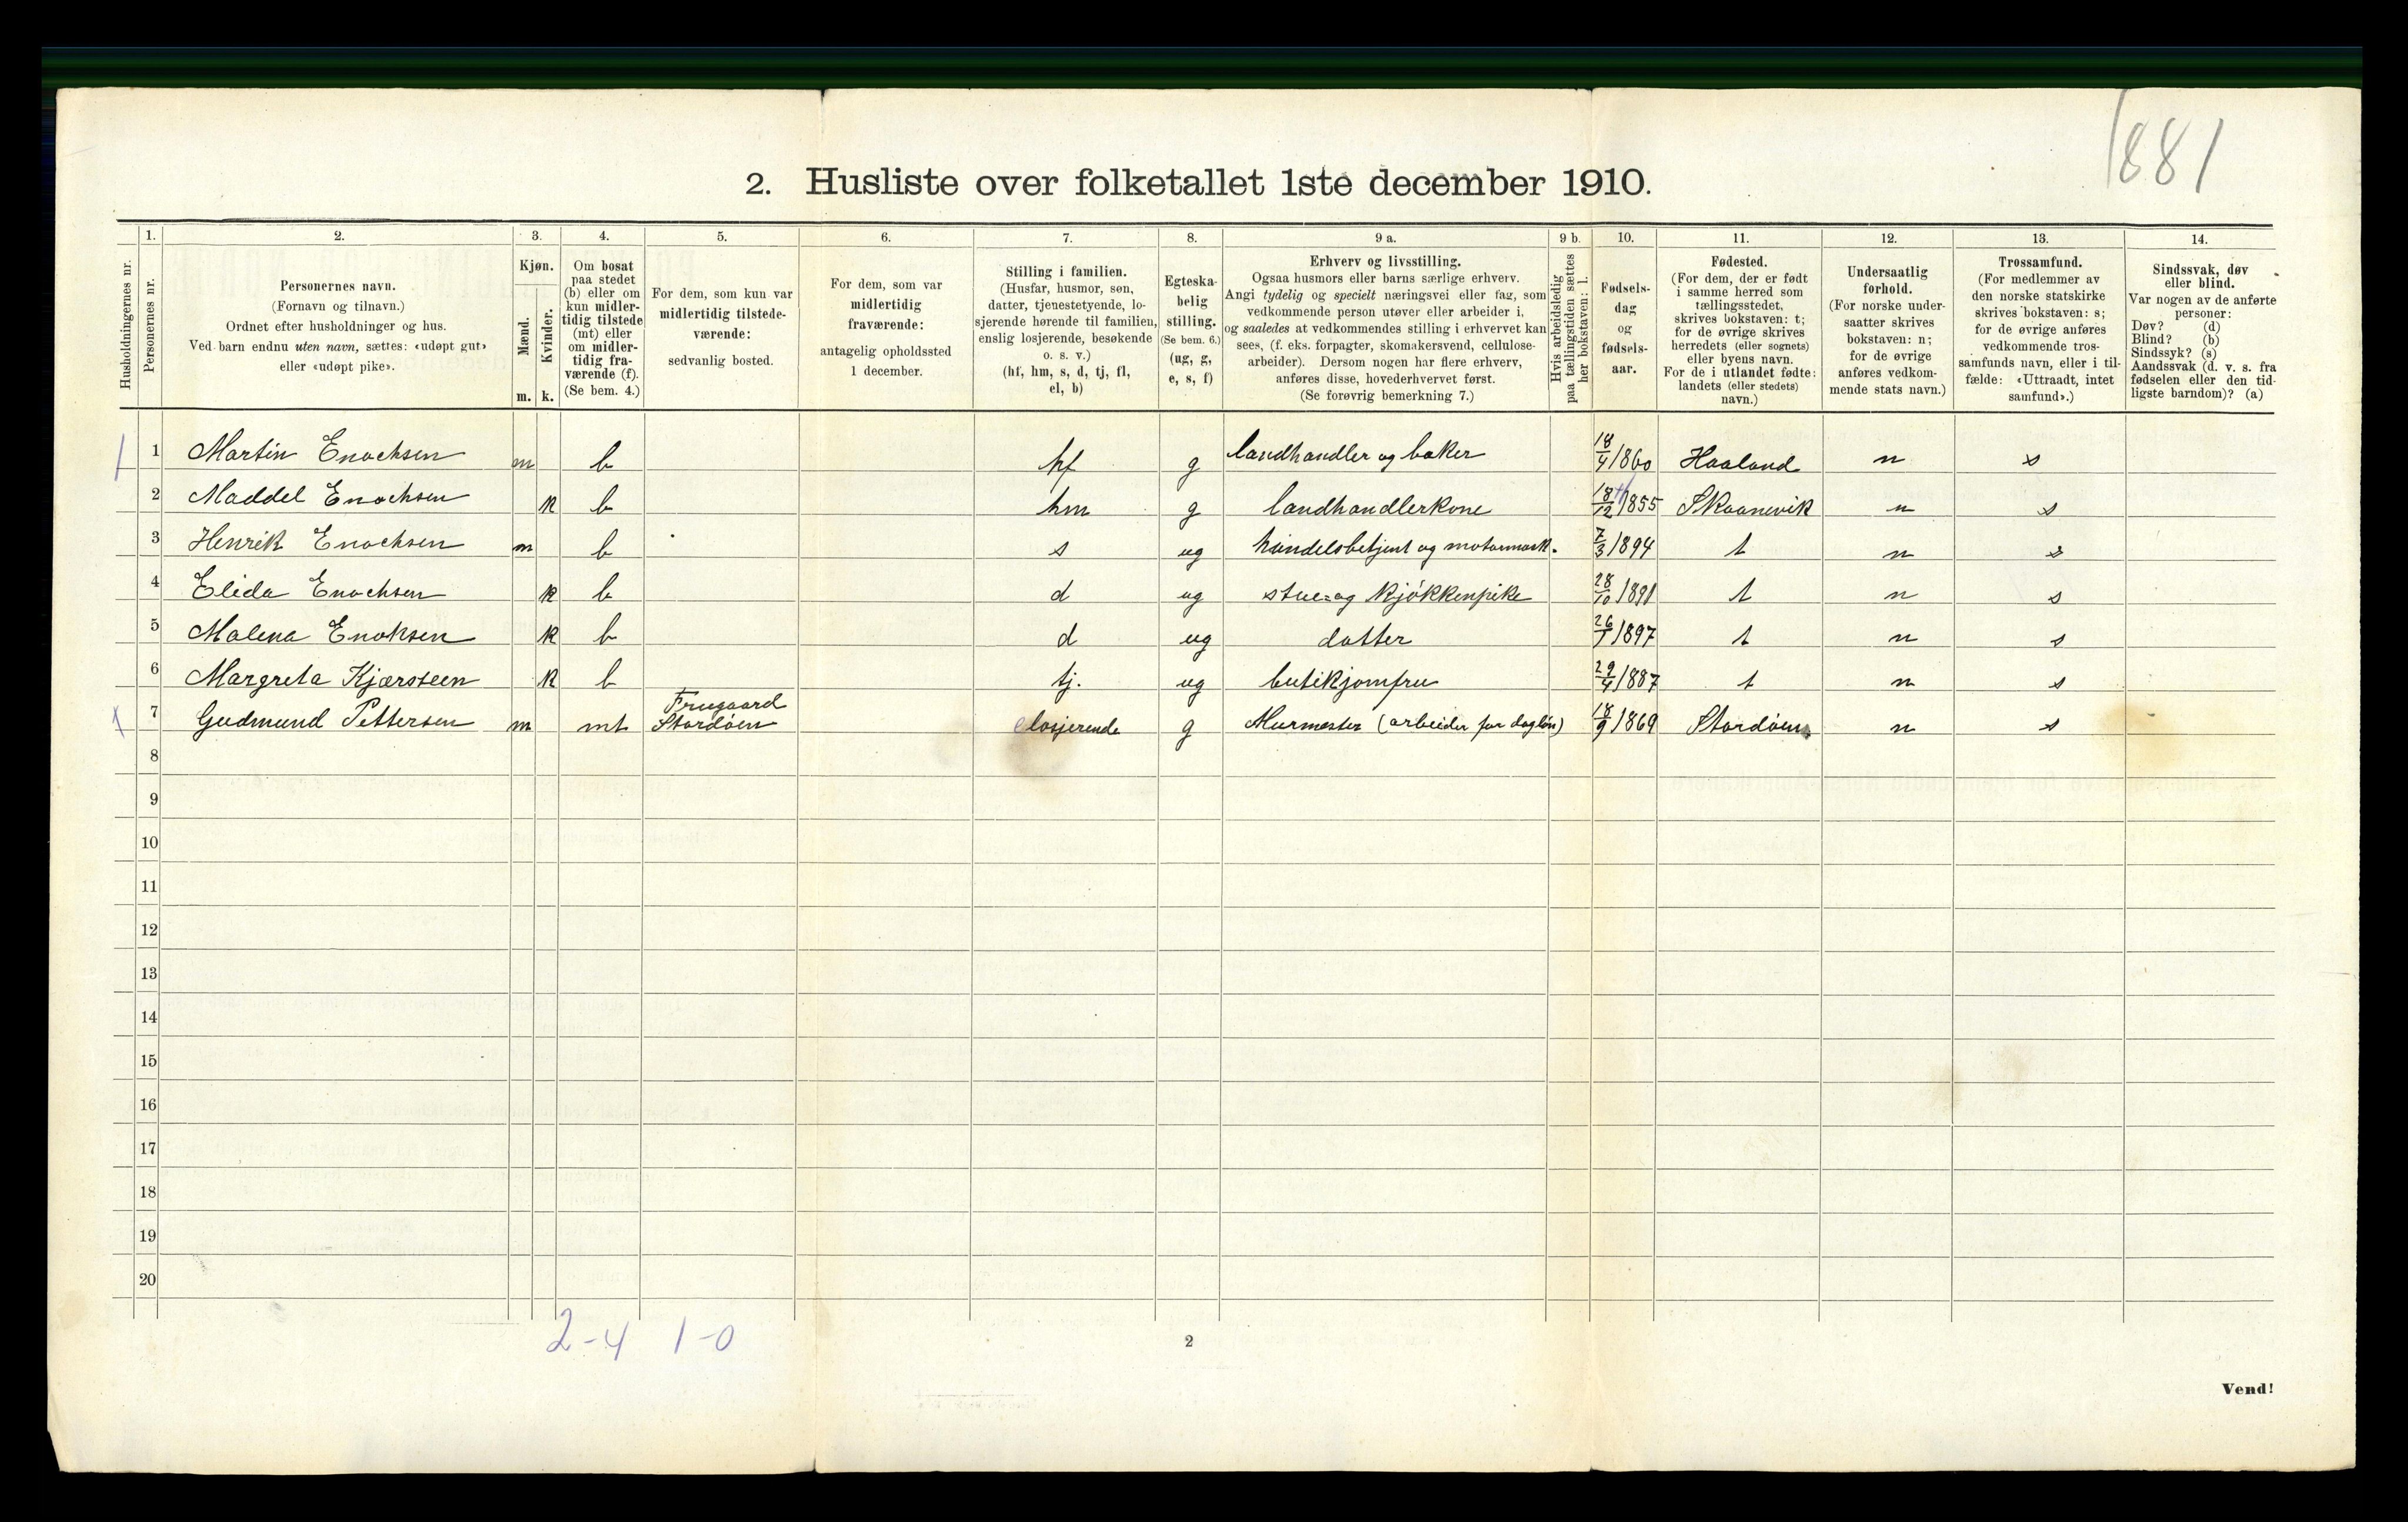 1881
2. Husliste over folketallet 1ste december 1910.
Husholdningernes nr.
1.
Personernes nr.
2.
Personernes navn.
(Fornavn og tilnavn.)
Ordnet efter husholdninger og hus.
Ved barn endnu uten navn, sættes: «udøpt gut»
eller «udøpt pike».
3.
Kjøn.
Mænd.
Kvinder.
m. k.
4.
Om bosat
paa stedet
(b) eller om
kun midler-
tidig tilstede
(mt) eller
om midler-
tidig fra-
værende (f).
(Se bem. 4.)
5.
For dem, som kun var
midlertidig tilstede-
værende:
sedvanlig bosted.
6.
For dem, som var
midlertidig
fraværende:
antagelig opholdssted
1 december.
7.
Stilling i familien.
(Husfar, husmor, søn,
datter, tjenestetyende, lo-
sjerende hørende til familien,
enslig losjerende, besøkende
o. s. v.)
(hf, hm, s, d, tj, fl,
el, b)
8.
Egteska-
belig
stilling.
(Se bem. 6.)
(ug, g,
e, s, f)
9 a.
Erhverv og livsstilling.
Ogsaa husmors eller barns særlige erhverv.
Angi tydelig og specielt næringsvei eller fag, som
vedkommende person utøver eller arbeider i,
og saaledes at vedkommendes stilling i erhvervet kan
sees, (f. eks. forpagter, skomakersvend, cellulose-
arbeider). Dersom nogen har flere erhverv,
anføres disse, hovederhvervet først.
(Se forøvrig bemerkning 7.)
9 b.
Hvis arbeidsledig
paa tællingstiden sættes
her bokstaven: l.
10.
Fødsels-
dag
og
fødsels-
aar.
11.
Fødested.
(For dem, der er født
i samme herred som
tællingsstedet,
skrives bokstaven: t;
for de øvrige skrives
herredets (eller sognets)
eller byens navn.
For de i utlandet fødte:
landets (eller stedets)
navn.)
12.
Undersaatlig
forhold.
(For norske under-
saatter skrives
bokstaven: n;
for de øvrige
anføres vedkom-
mende stats navn.)
13.
Trossamfund.
(For medlemmer av
den norske statskirke
skrives bokstaven: s;
for de øvrige anføres
vedkommende tros-
samfunds navn, eller i til-
fælde: «Uttraadt, intet
samfund».)
14.
Sindssvak, døv
eller blind.
Var nogen av de anførte
personer:
Døv? (d)
Blind? (b)
Sindssyk? (s)
Aandssvak (d. v. s. fra
fødselen eller den tid-
ligste barndom)? (a)
1 Martin Enochsen m b hf g landhandler og baker 18/4 1860 Haaland n s
2 Maddel Enochsen k b hm g landhandlerkone 18/12 1855 Skaanevik n s
3 Henrik Enochsen m b s ug handelsbetjent og motormask. 7/3 1894 t n s
4 Elida Enochsen k b d ug stue- og kjøkkenpike 28/10 1891 t n s
5 Malena Enoksen k b d ug datter 26/1 1897 t n s
6 Margreta Kjærsteen k b tj. ug butikjomfru 29/4 1887 t n s
7 Gudmund Pettersen m mt Frugaard Stordøen elosjerende g Murmester (arbeider for dagløn) 18/9 1869 Stordøen n s
8
9
10
11
12
13
14
15
16
17
18
19
20
2-4 1-0
2
Vend!